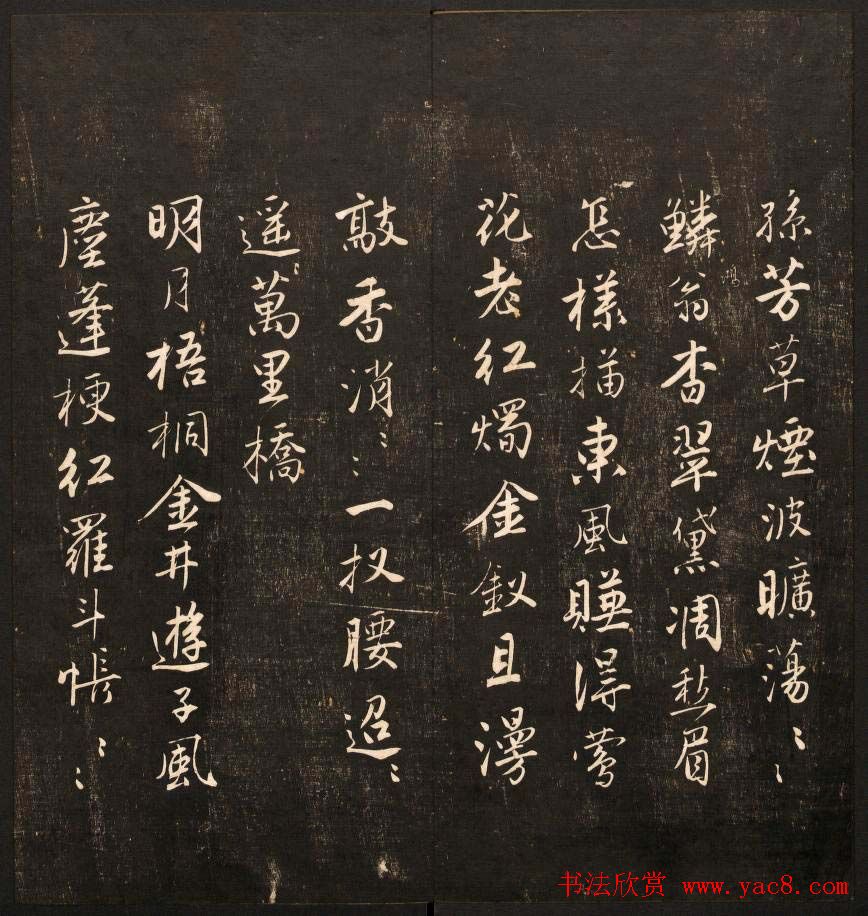 孫芳草煙波曠蕩〻〻
鱗鴻翁杳翠黛凋愁眉
怎樣描東風賺得鶯
花老紅燭金釵且漫
敲香消〻〻一扠腰迢〻
遥〻萬里橋
明月梧桐金井遊子風
塵蓬梗紅羅斗帳〻〻
书法欣赏 www.yac8.com